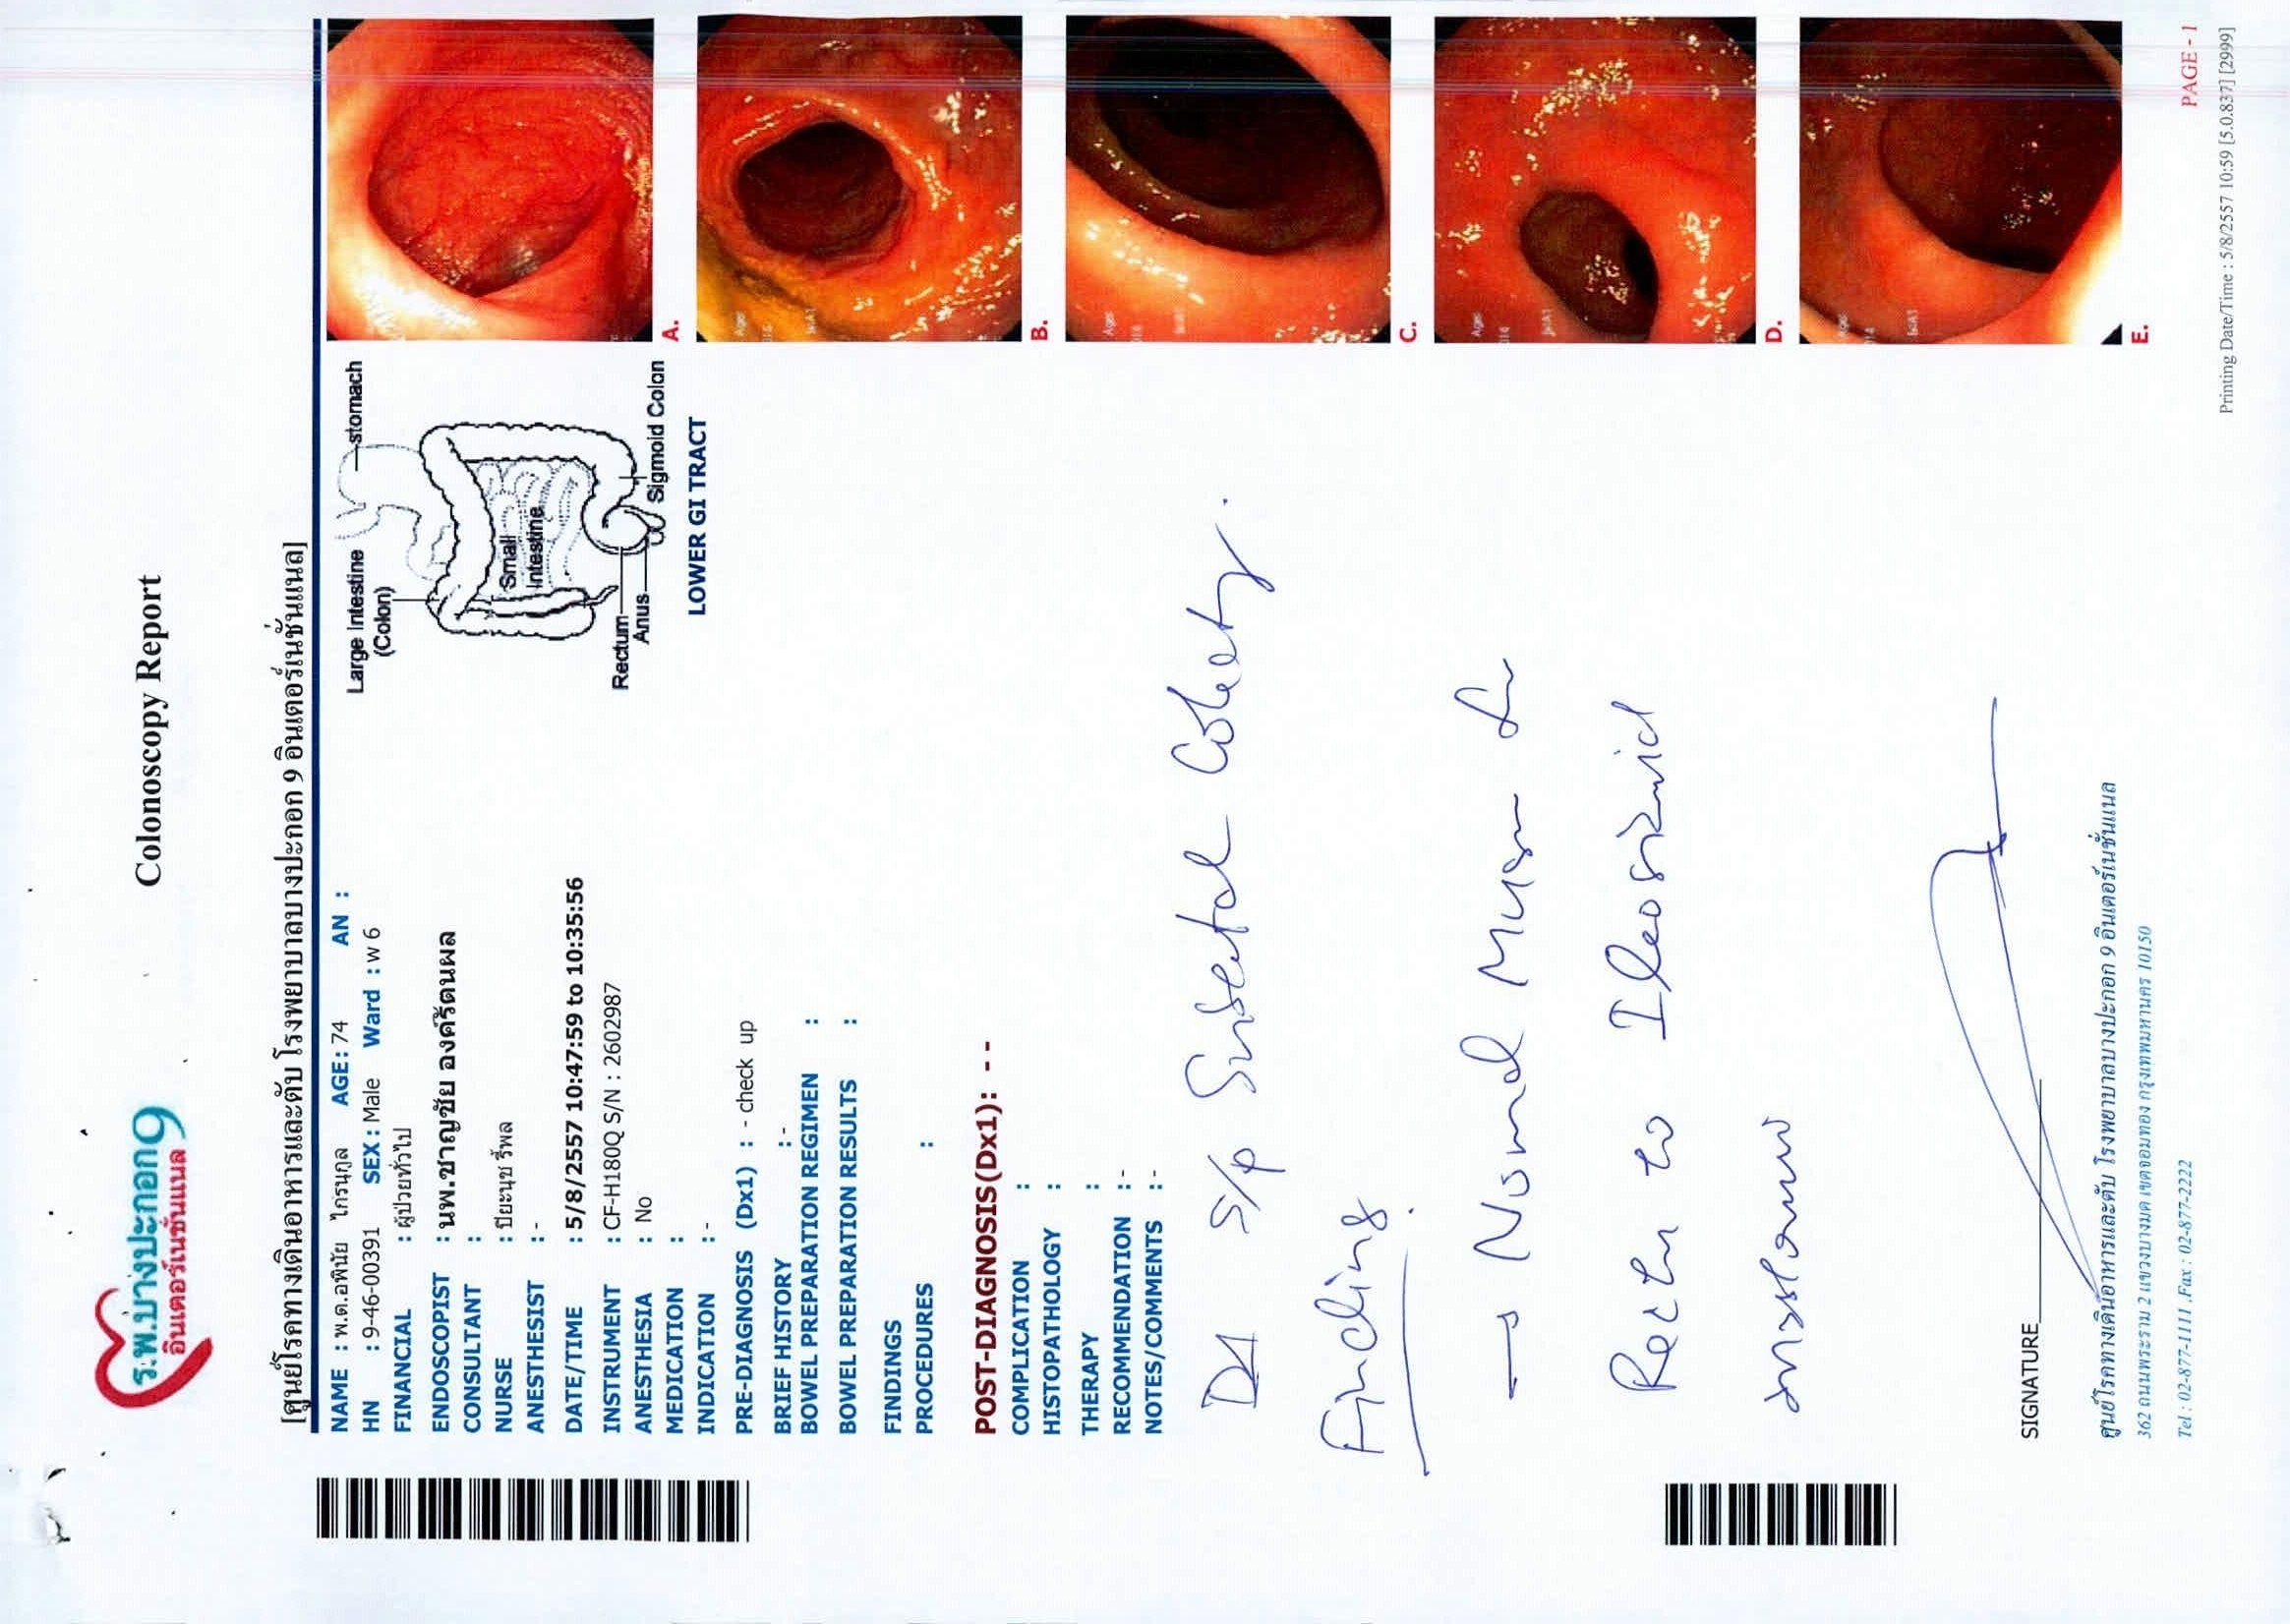 ร.พ.บางปะกอก9
อินเตอร์เนชั่นแนล
Colonoscopy Report
[ศูนย์โรคทางเดินอาหารและตับ โรงพยาบาลบางปะกอก 9 อินเตอร์เนชั่นแนล]
NAME : พ.ต.อพินัย ไกรนุกูล AGE: 74 AN :
HN : 9-46-00391 SEX : Male Ward : w 6
FINANCIAL : ผู้ป่วยทั่วไป
ENDOSCOPIST : นพ.ชาญชัย องค์รัตนผล
CONSULTANT :
NURSE : ปิยะนุช รี้พล
ANESTHESIST : -
DATE/TIME : 5/8/2557 10:47:59 to 10:35:56
INSTRUMENT : CF-H180Q S/N : 2602987
ANESTHESIA : No
MEDICATION :
INDICATION : -
PRE-DIAGNOSIS (Dx1) : - check up
BRIEF HISTORY : -
BOWEL PREPARATION REGIMEN :
BOWEL PREPARATION RESULTS :
FINDINGS
PROCEDURES :
POST-DIAGNOSIS(Dx1): - -
COMPLICATION :
HISTOPATHOLOGY :
THERAPY :
RECOMMENDATION : -
NOTES/COMMENTS : -
Large Intestine
(Colon)
stomach
Small
Intestine
Rectum
Anus
Sigmoid Colon
LOWER GI TRACT
A.
B.
C.
D.
E.
S/p
Finding
→ Normal
to
SIGNATURE
ศูนย์โรคทางเดินอาหารและตับ โรงพยาบาลบางปะกอก 9 อินเตอร์เนชั่นแนล
362 ถนนพระราม 2 แขวงบางมด เขตจอมทอง กรุงเทพมหานคร 10150
Tel : 02-877-1111 ,Fax : 02-877-222
PAGE - 1
Printing Date/Time : 5/8/2557 10:59 [5.0.837] [2999]